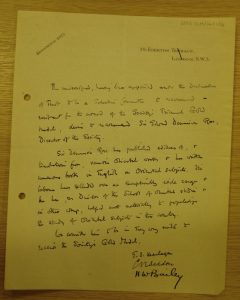 LONDON S.W.5.
The undersigned, having been appointed under the declaration
of Trust to be a Selection Committee to recommend a
recipient for the award of the Society's Triennial Gold
Medal, desire to recommend Sir Edward Denison Ross,
Director of the Society.
Sir Denison Ross has published editions of, &
translations from, various Oriental works & has written
numerous books in English on Oriental subjects. His
labours have extended over an exceptionally wide range &
he has, as Director of the School of Oriental Studies & in
other ways, helped most materially to popularize
the study of Oriental subjects in this country.
We consider him to be in every way worthy to
receive the Society's Gold Medal.
H W Bailey